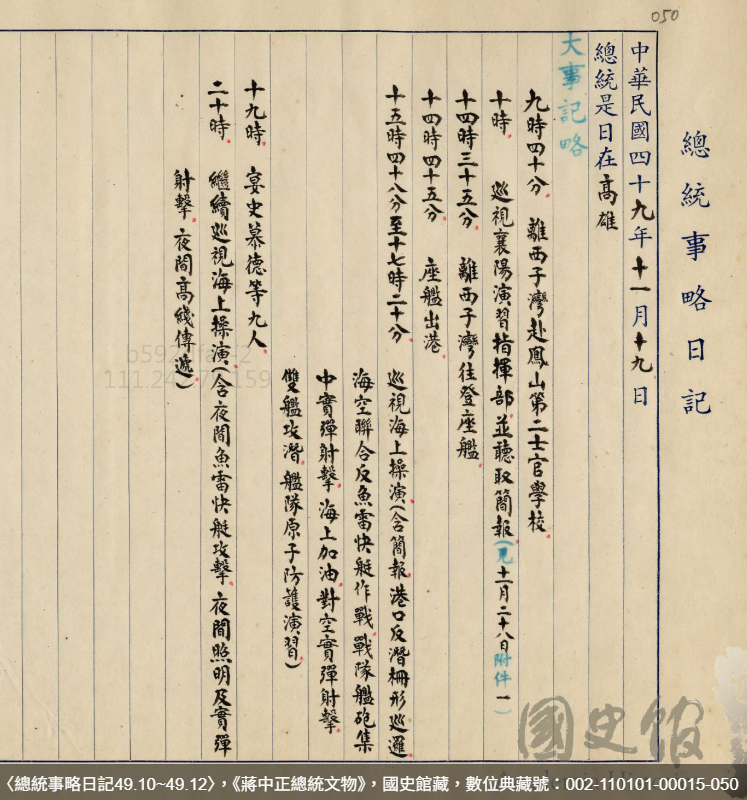 050
總統事略日記
中華民國四十九年十一月十九日
總統是日在高雄
大事記略
九時四十分 離西子灣赴鳳山第二士官學校.
十時. 巡視襄陽演習指揮部.並聽取簡報.(見十一月二十八日附件一)
十四時三十五分. 離西子灣往登座艦.
十四時四十五分. 座艦出港.
十五時四十八分至十七時二十分. 巡視海上操演.(含簡報.港口反潛柵形巡邏
海空聯合反魚雷快艇作戰.戰隊艦砲集
中實彈射擊.海上加油.對空實彈射擊.
雙艦攻潛.艦隊原子防護演習.)
十九時. 宴史慕德等九人.
二十時. 繼續巡視海上操演.(含夜間魚雷快艇攻擊.夜間照明及實彈
射擊.夜間高綫傳遞.)
國史館
〈總統事略日記49.10~49.12〉,《蔣中正總統文物》,國史館藏,數位典藏號:002-110101-00015-050